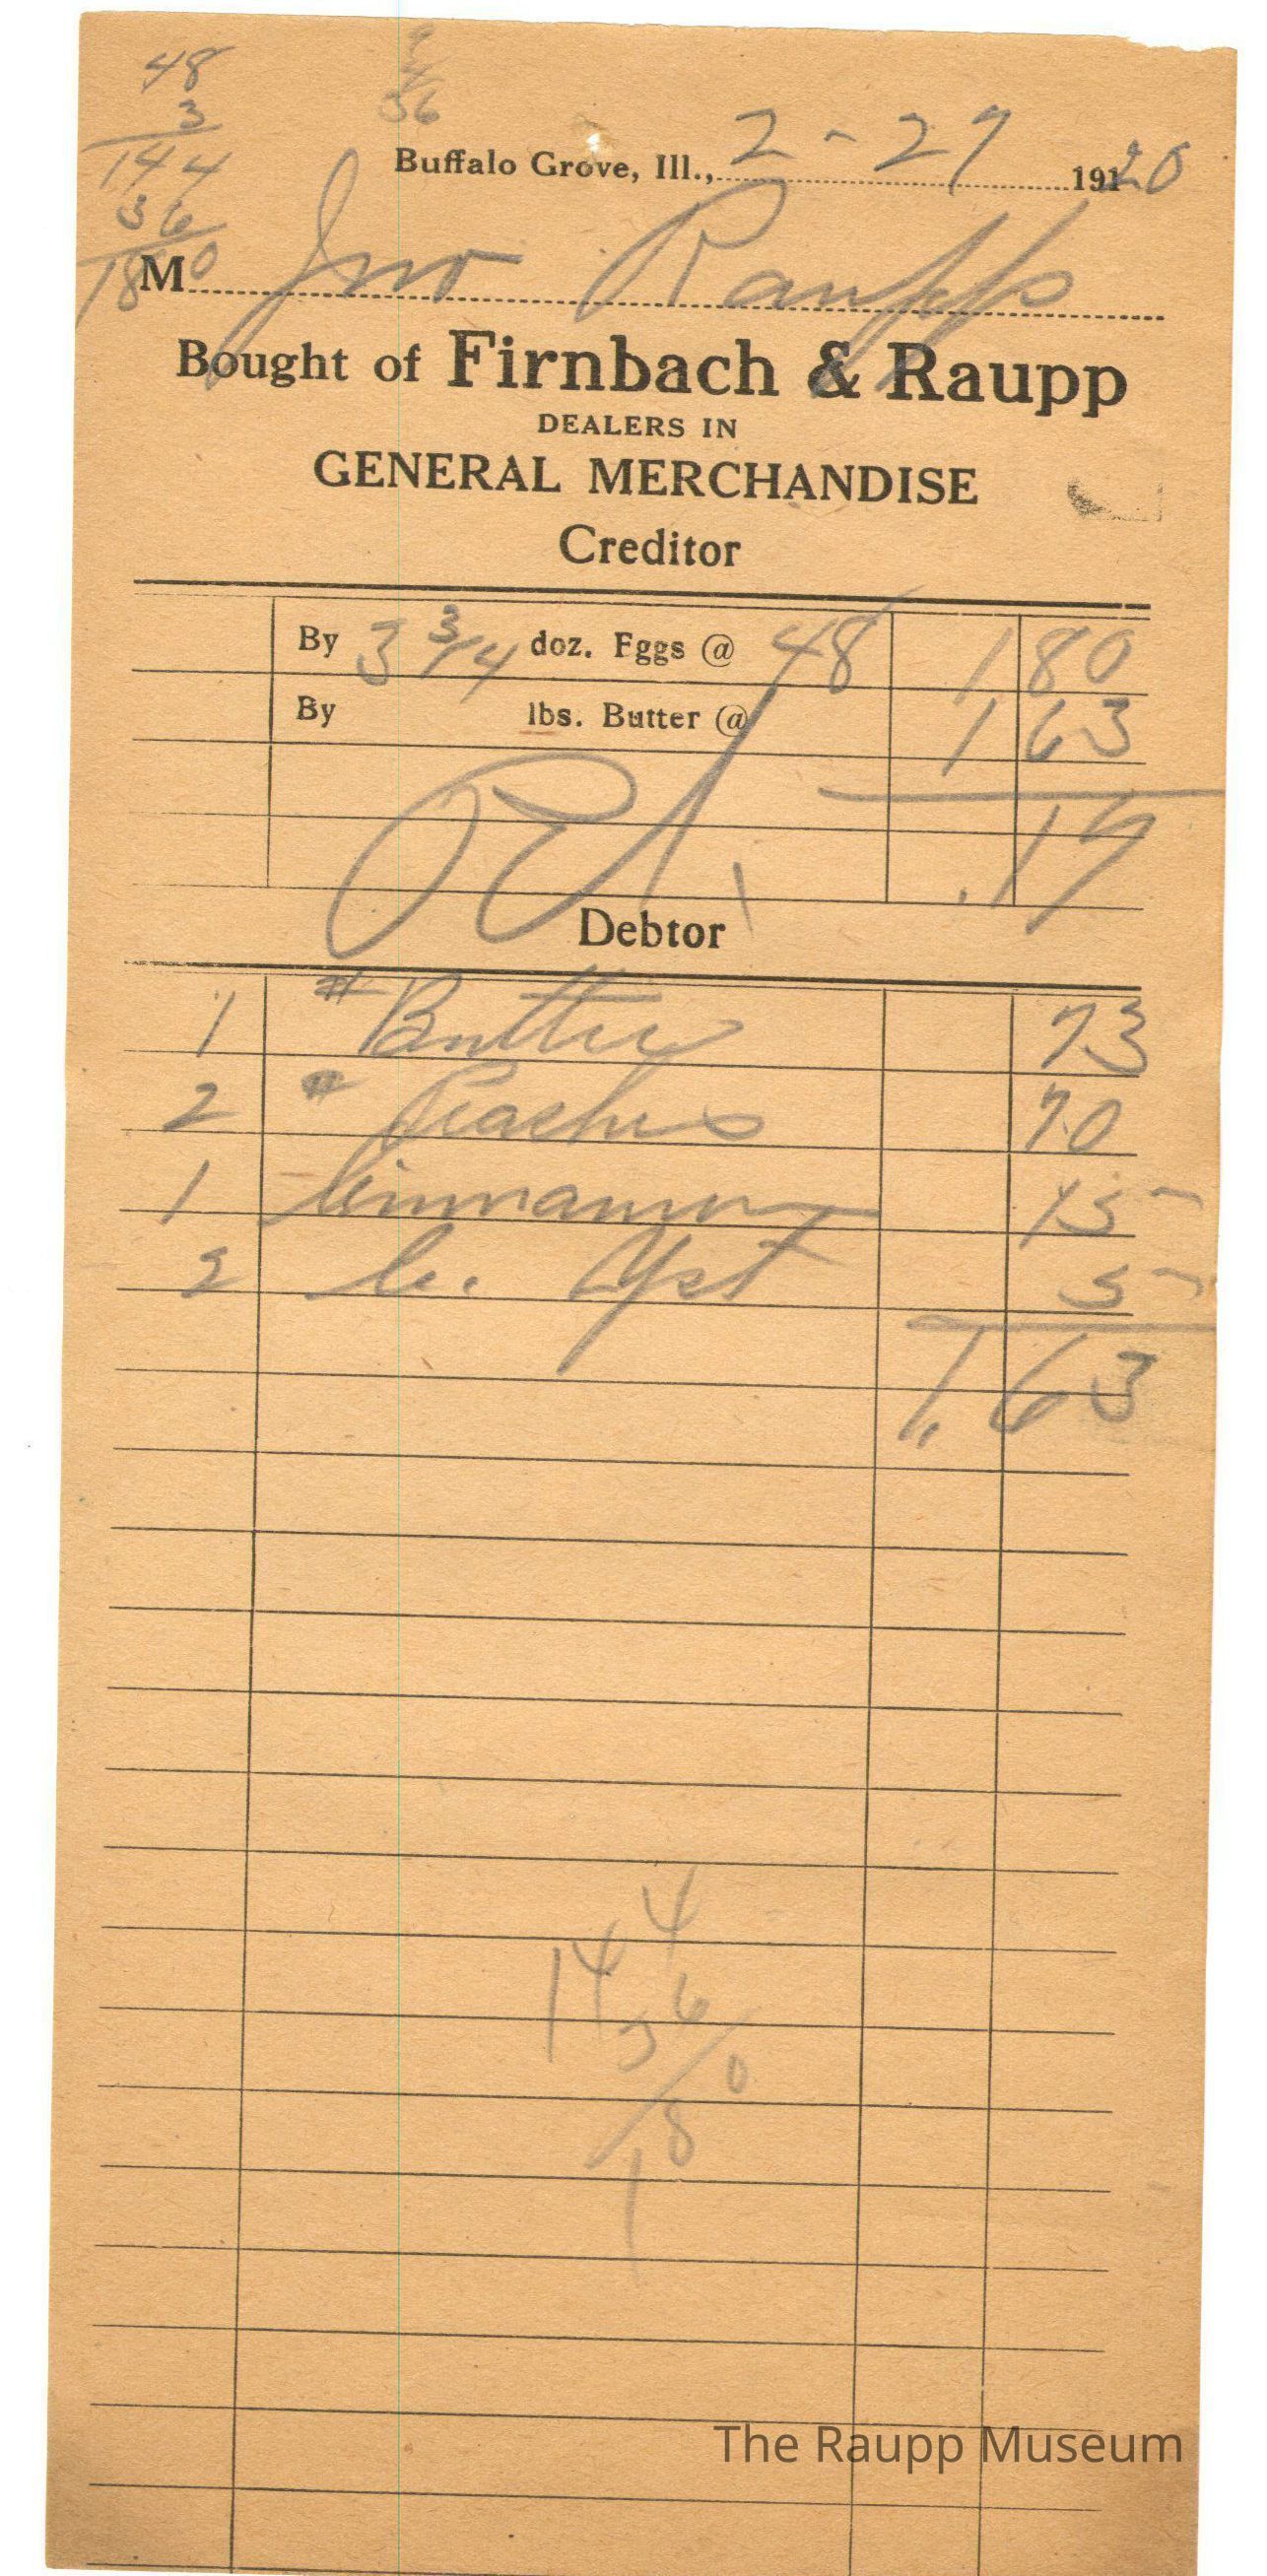 48
3
144
36
180
9
4
36
Buffalo Grove, Ill., 2-27 191 20
M Jno Raupp
Bought of Firnbach & Raupp
DEALERS IN
GENERAL MERCHANDISE
Creditor
By 3 3/4 doz. Fggs @ 48 1 80
By lbs. Butter @ 1 63
.17
Debtor
1 # Butter 73
2 # Peaches 70
1 Cinnamon 15
2 c. Yst 5
1.63
4
14
6
3
0
8
1
The Raupp Museum